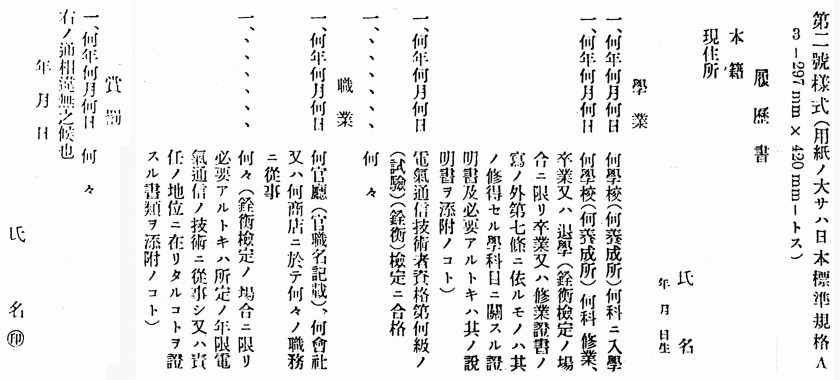 第二號樣式(用紙ノ大サハ日本標準規格A
3－297mm×420mm－トス)
履歷書
本籍
現住所
氏名
年月日生
學業
一、何年何月何日 何學校(何養成所)何科ニ入學
一、何年何月何日 何學校(何養成所)何科修業、
卒業又ハ退學(銓衡檢定ノ場
合ニ限リ卒業又ハ修業證書ノ
寫ノ外第七條ニ依ルモノハ其
ノ修得セル學科目ニ關スル證
明書及必要アルトキハ其ノ說
明書ヲ添附ノコト)
一、何年何月何日 電氣通信技術者資格第何級ノ
(試驗)(銓衡)檢定ニ合格
一、、、、、、、 何々
職業
一、何年何月何日 何官廳(官職名記載)、何會社
又ハ何商店ニ於テ何々ノ職務
ニ從事
一、、、、、、、 何々(銓衡檢定ノ場合ニ限リ
必要アルトキハ所定ノ年限電
氣通信ノ技術ニ從事シ又ハ責
任ノ地位ニ在リタルコトヲ證
スル書類ヲ添附ノコト)
賞罰
一、何年何月何日 何々
右ノ通相違無之候也
年月日
氏名㊞